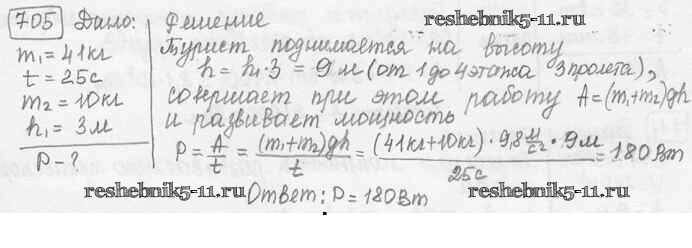 705 Дано: Решение
reshebnik5-11.ru
m₁=41кг
t=25с
m₂=10кг
h₁=3м
P-?
Турист поднимается на высоту
h=h₁·3=9м (от 1 до 4 этажа 3 пролета),
совершает при этом работу A=(m₁+m₂)gh
и развивает мощность
P=A/t=(m₁+m₂)gh/t=(41кг+10кг)·9,8 м/с²·9м/25с=180Вт
reshebnik5-11.ru
Ответ: P=180Вт
reshebnik5-11.ru